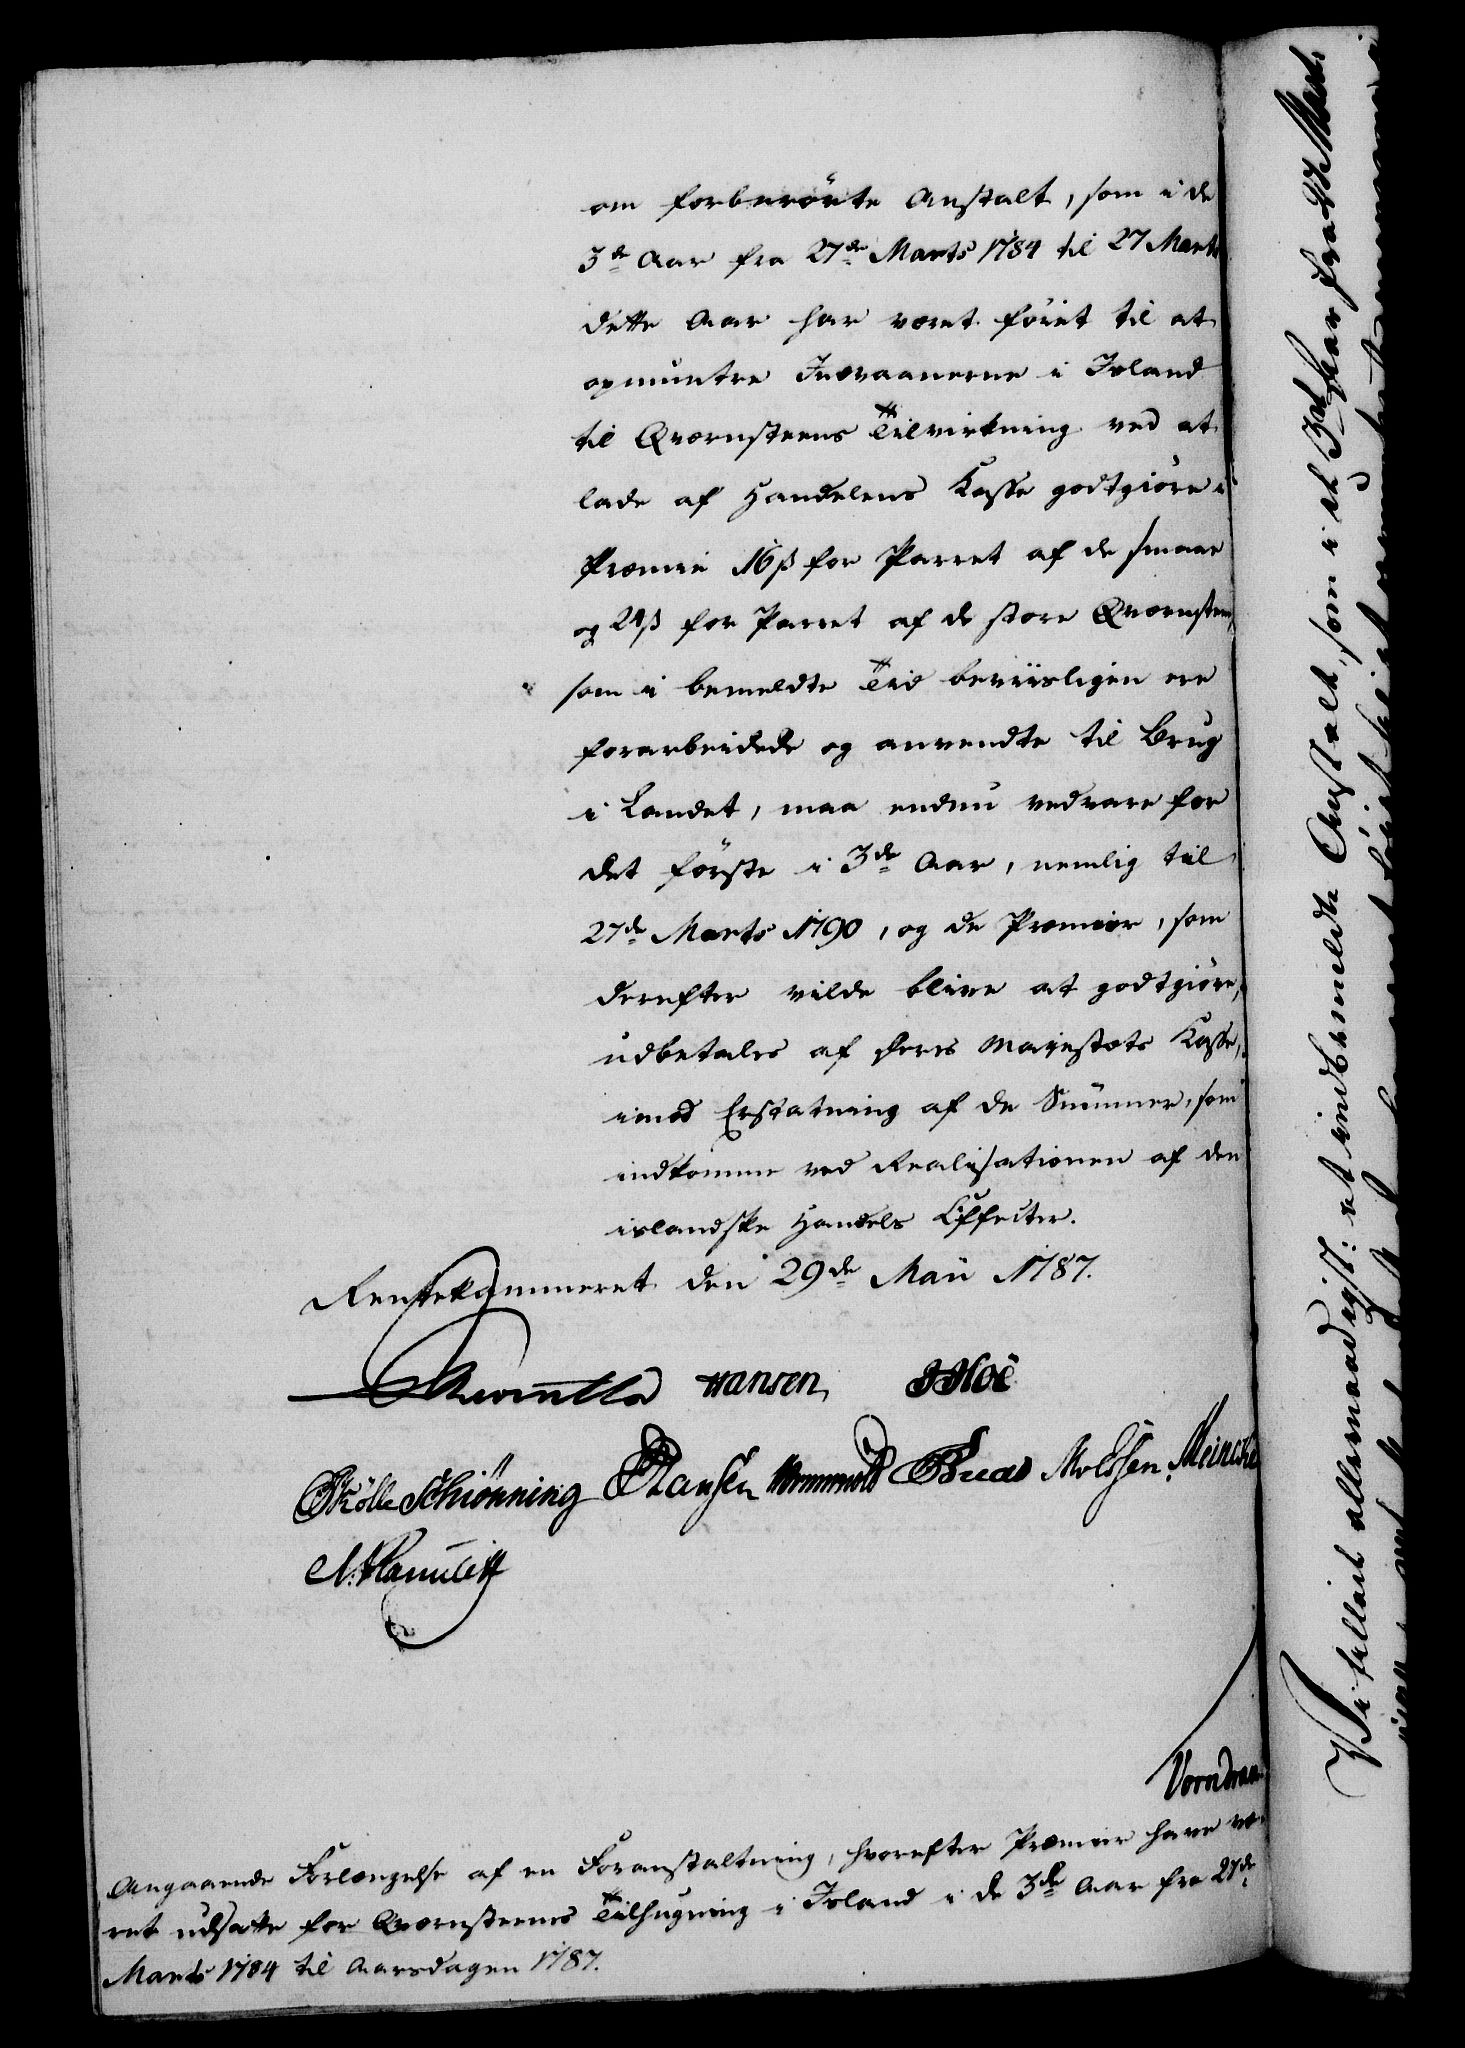 om forberørte Anstalt, som i de
3de Aar fra 27de Marts 1784 til 27 Marts
dette Aar har været föiet til at
opmuntre Indvaanerne i Island
til Qværnsteens Tilvirkning ved at
lade af Handelens Kasse godtgiöre i
Præmie 16 ß for Parret af de smaae
og 24 ß for Parret af de store Qværnsteene,
som i bemeldte Tid beviisligen ere
forarbeidede og anvendte til Brug
i Landet, maa endnu vedvare for
det förste i 3de Aar, nemlig til
27de Marts 1790, og de Præmier, som
derefter vilde blive at godtgiöre,
udbetales af Deres Majestæts Kasse,
imod Erstatning af de Summer, som
indkomme ved Realisationen af den
islandske Handels Effecter.
Rentekammeret den 29de Maii 1787.
Hansen
Schiönning Hansen Wormskiold Meincke
Vorndran
Angaaende Forlængelse af en Foranstaltning, hvorefter Præmier have væ-
ret udsatte for Qværnsteens Tilhugning i Island i de 3de Aar fra 27de
Marts 1784 til Aarsdagen 1787.
Vi tillade allernaadigst: at indbemeldte Anstalt, som i de 3de Aar fra 27 Mart.